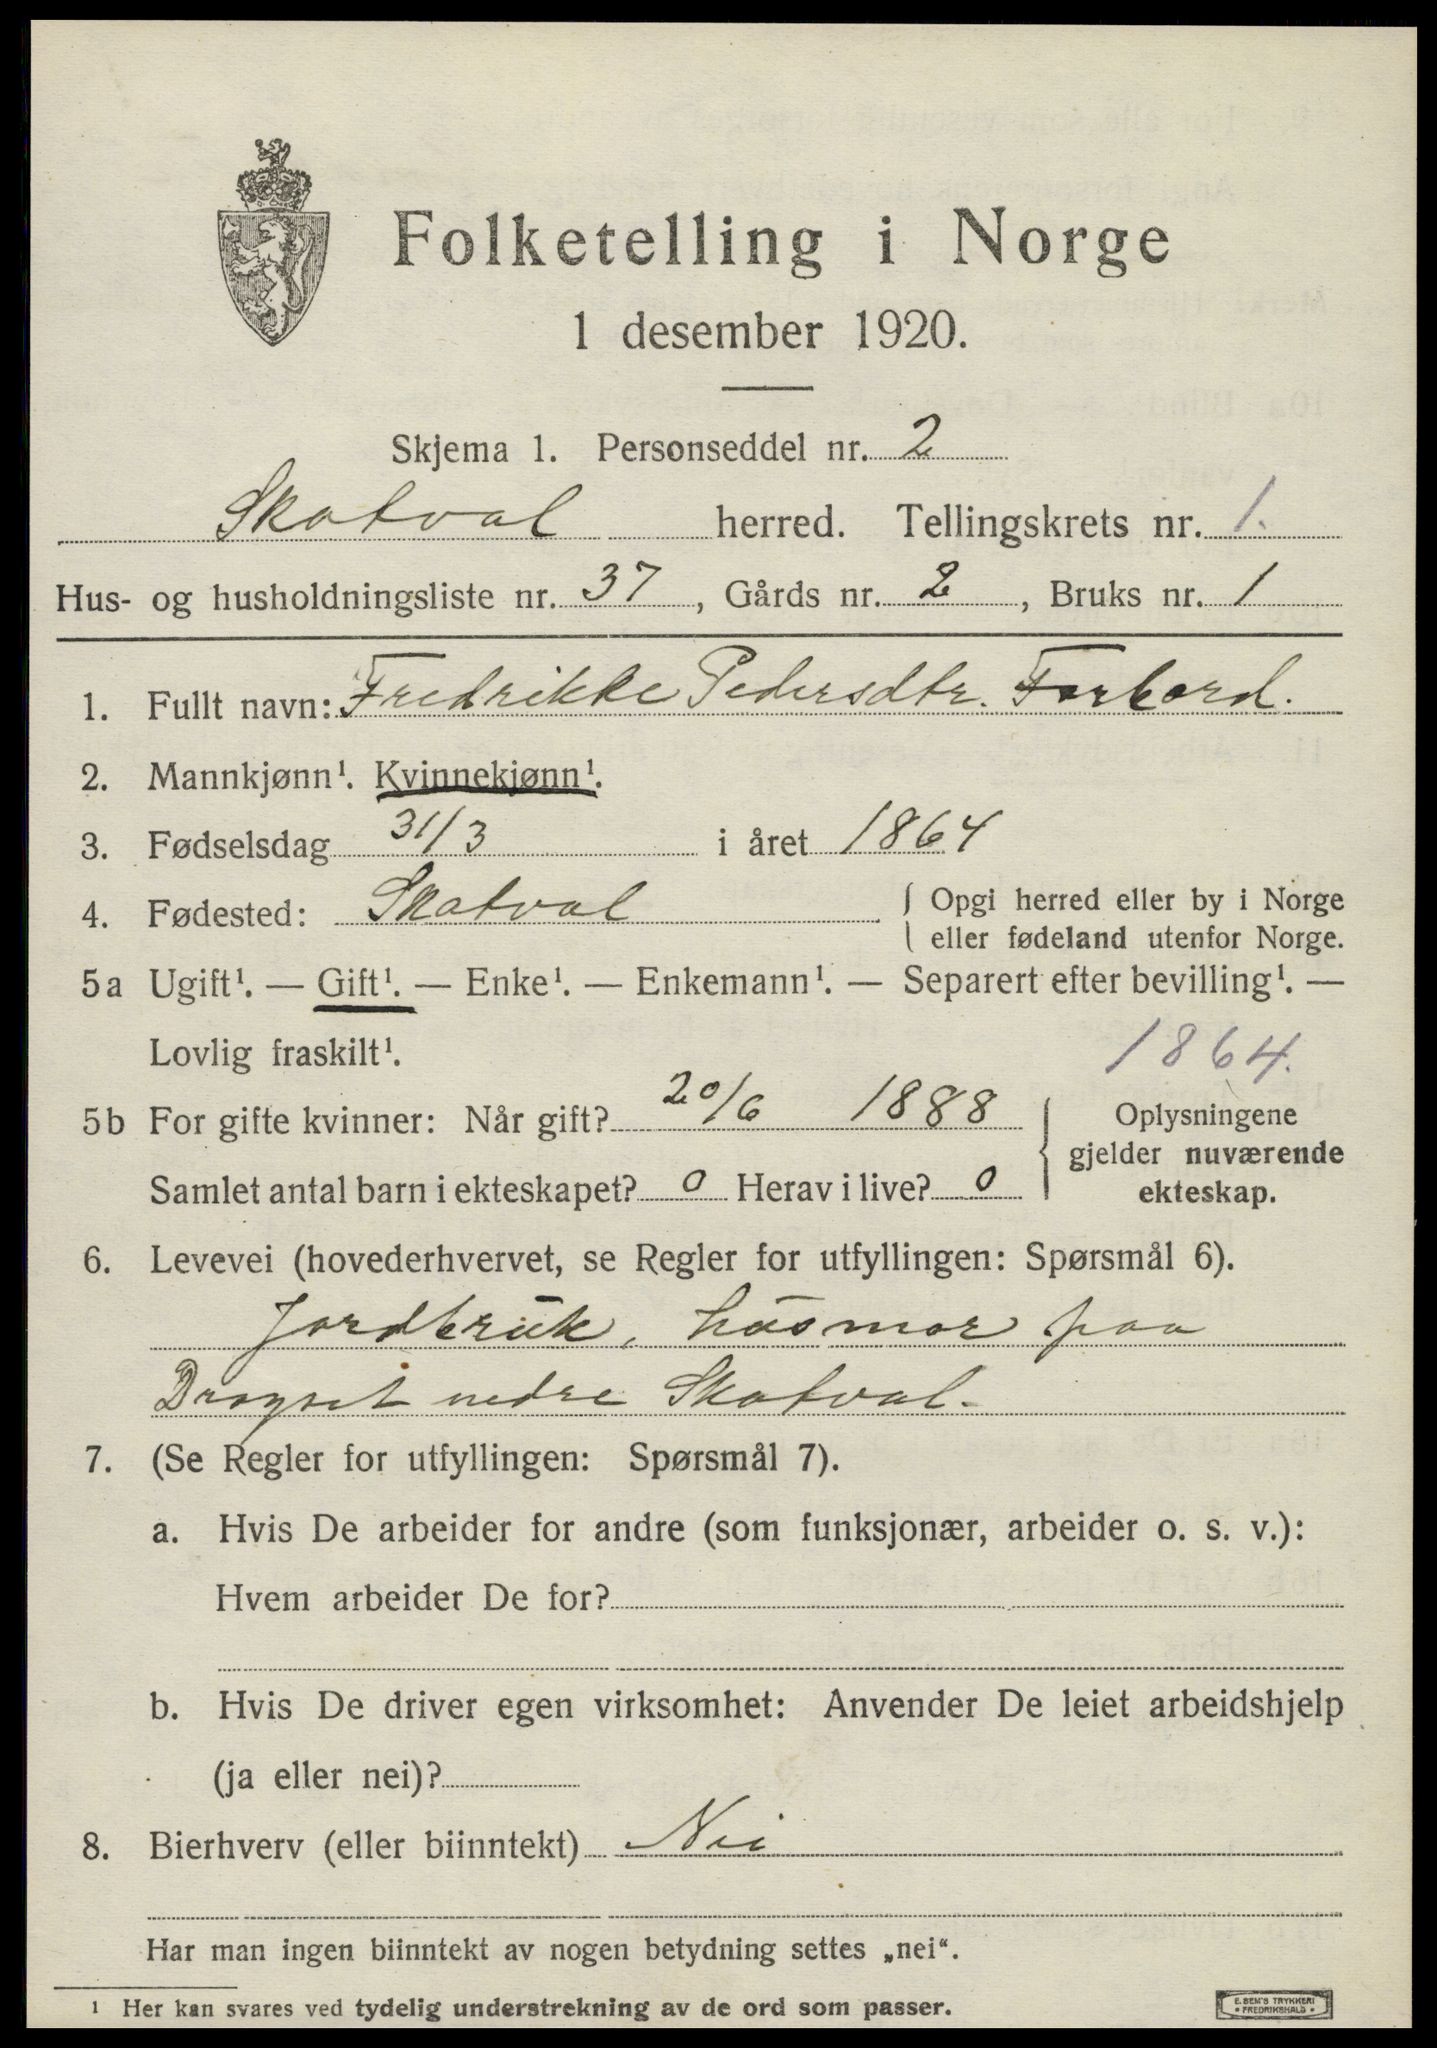 Folketelling i Norge
1 desember 1920.
Skjema 1. Personseddel nr. 2
Skatval herred. Tellingskrets nr. 1.
Hus- og husholdningsliste nr. 37, Gårds nr. 2, Bruks nr. 1
1. Fullt navn: Fredrikke Pedersdtr. Forbord.
2. Mannkjønn¹. Kvinnekjønn¹.
3. Fødselsdag 31/3 i året 1864
4. Fødested: Skatval { Opgi herred eller by i Norge
eller fødeland utenfor Norge.
5a Ugift¹. — Gift¹. — Enke¹. — Enkemann¹. — Separert efter bevilling¹. —
Lovlig fraskilt¹. 1864.
5b For gifte kvinner: Når gift? 20/6 1888 { Oplysningene
gjelder nuværende
Samlet antal barn i ekteskapet? 0 Herav i live? 0 ekteskap.
6. Levevei (hovederhvervet, se Regler for utfyllingen: Spørsmål 6).
Jordbrük, hüsmor paa
nedre Skatval.
7. (Se Regler for utfyllingen: Spørsmål 7).
a. Hvis De arbeider for andre (som funksjonær, arbeider o. s. v.):
Hvem arbeider De for?
b. Hvis De driver egen virksomhet: Anvender De leiet arbeidshjelp
(ja eller nei)?
8. Bierhverv (eller biinntekt) Nei
Har man ingen biinntekt av nogen betydning settes „nei“.
¹ Her kan svares ved tydelig understrekning av de ord som passer.
E. SEM'S TRYKKERI
• FREDRIKSHALD •